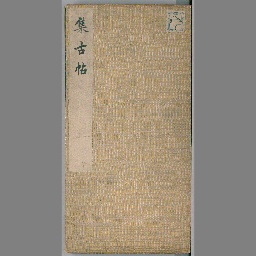 集古帖